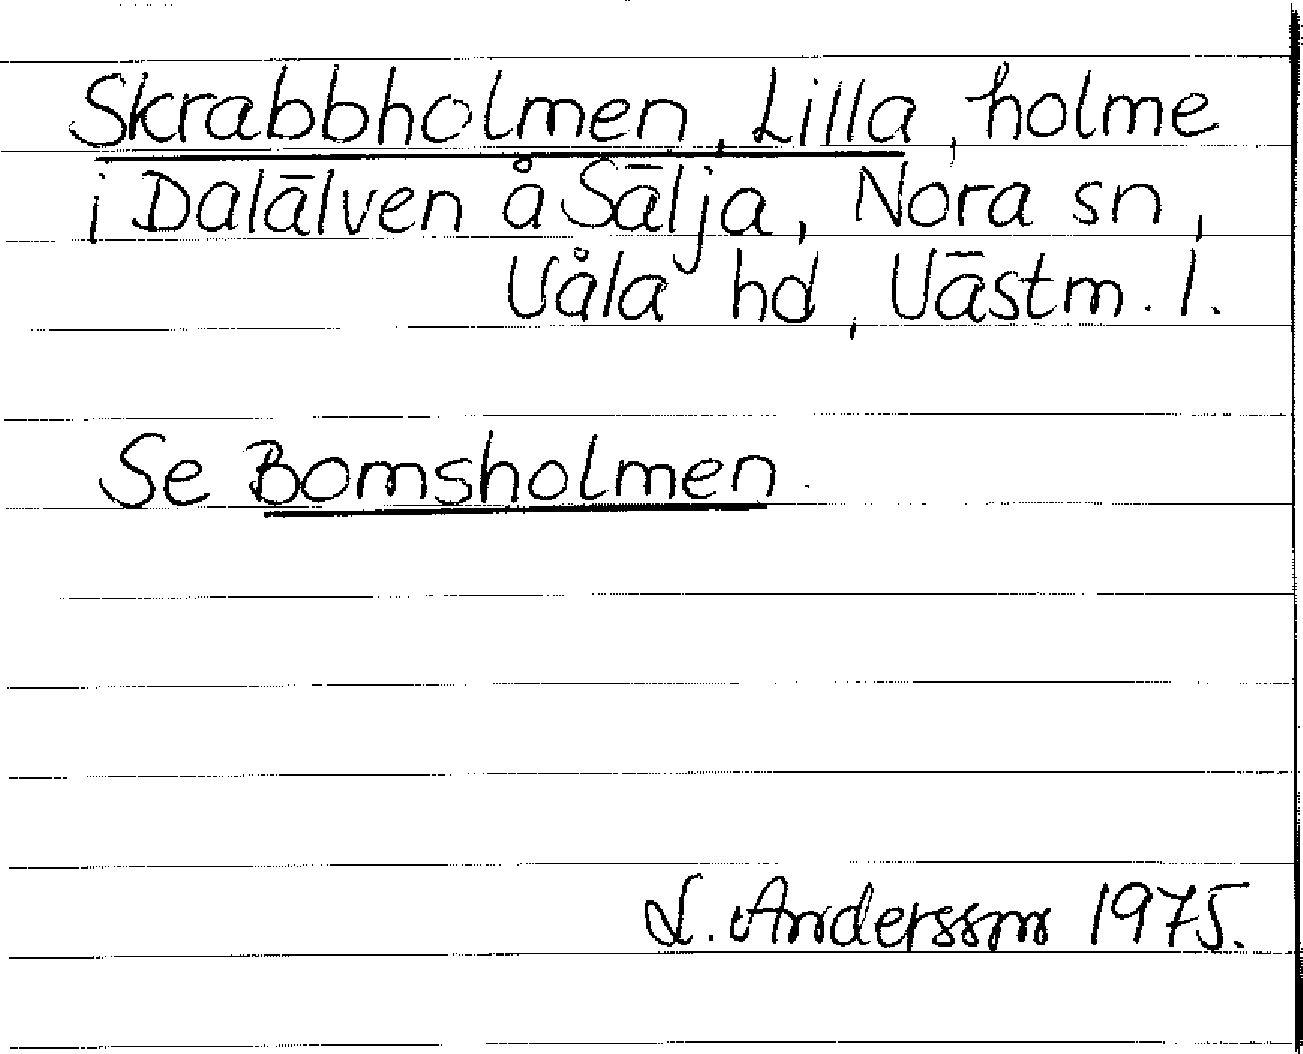 Skrabbholmen, Lilla, holme
i Dalälven å Sälja, Nora sn,
Våla hd, Västm. l.
Se Bomsholmen.
L. Andersson 1975.